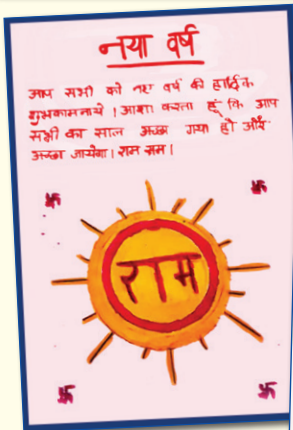 नया वर्ष
आप सभी को नए वर्ष की हार्दिक
शुभकामनाये । आशा करता हूं कि आप
सभी का साल अच्छा गया हो और
अच्छा जायेगा । राम राम ।
राम